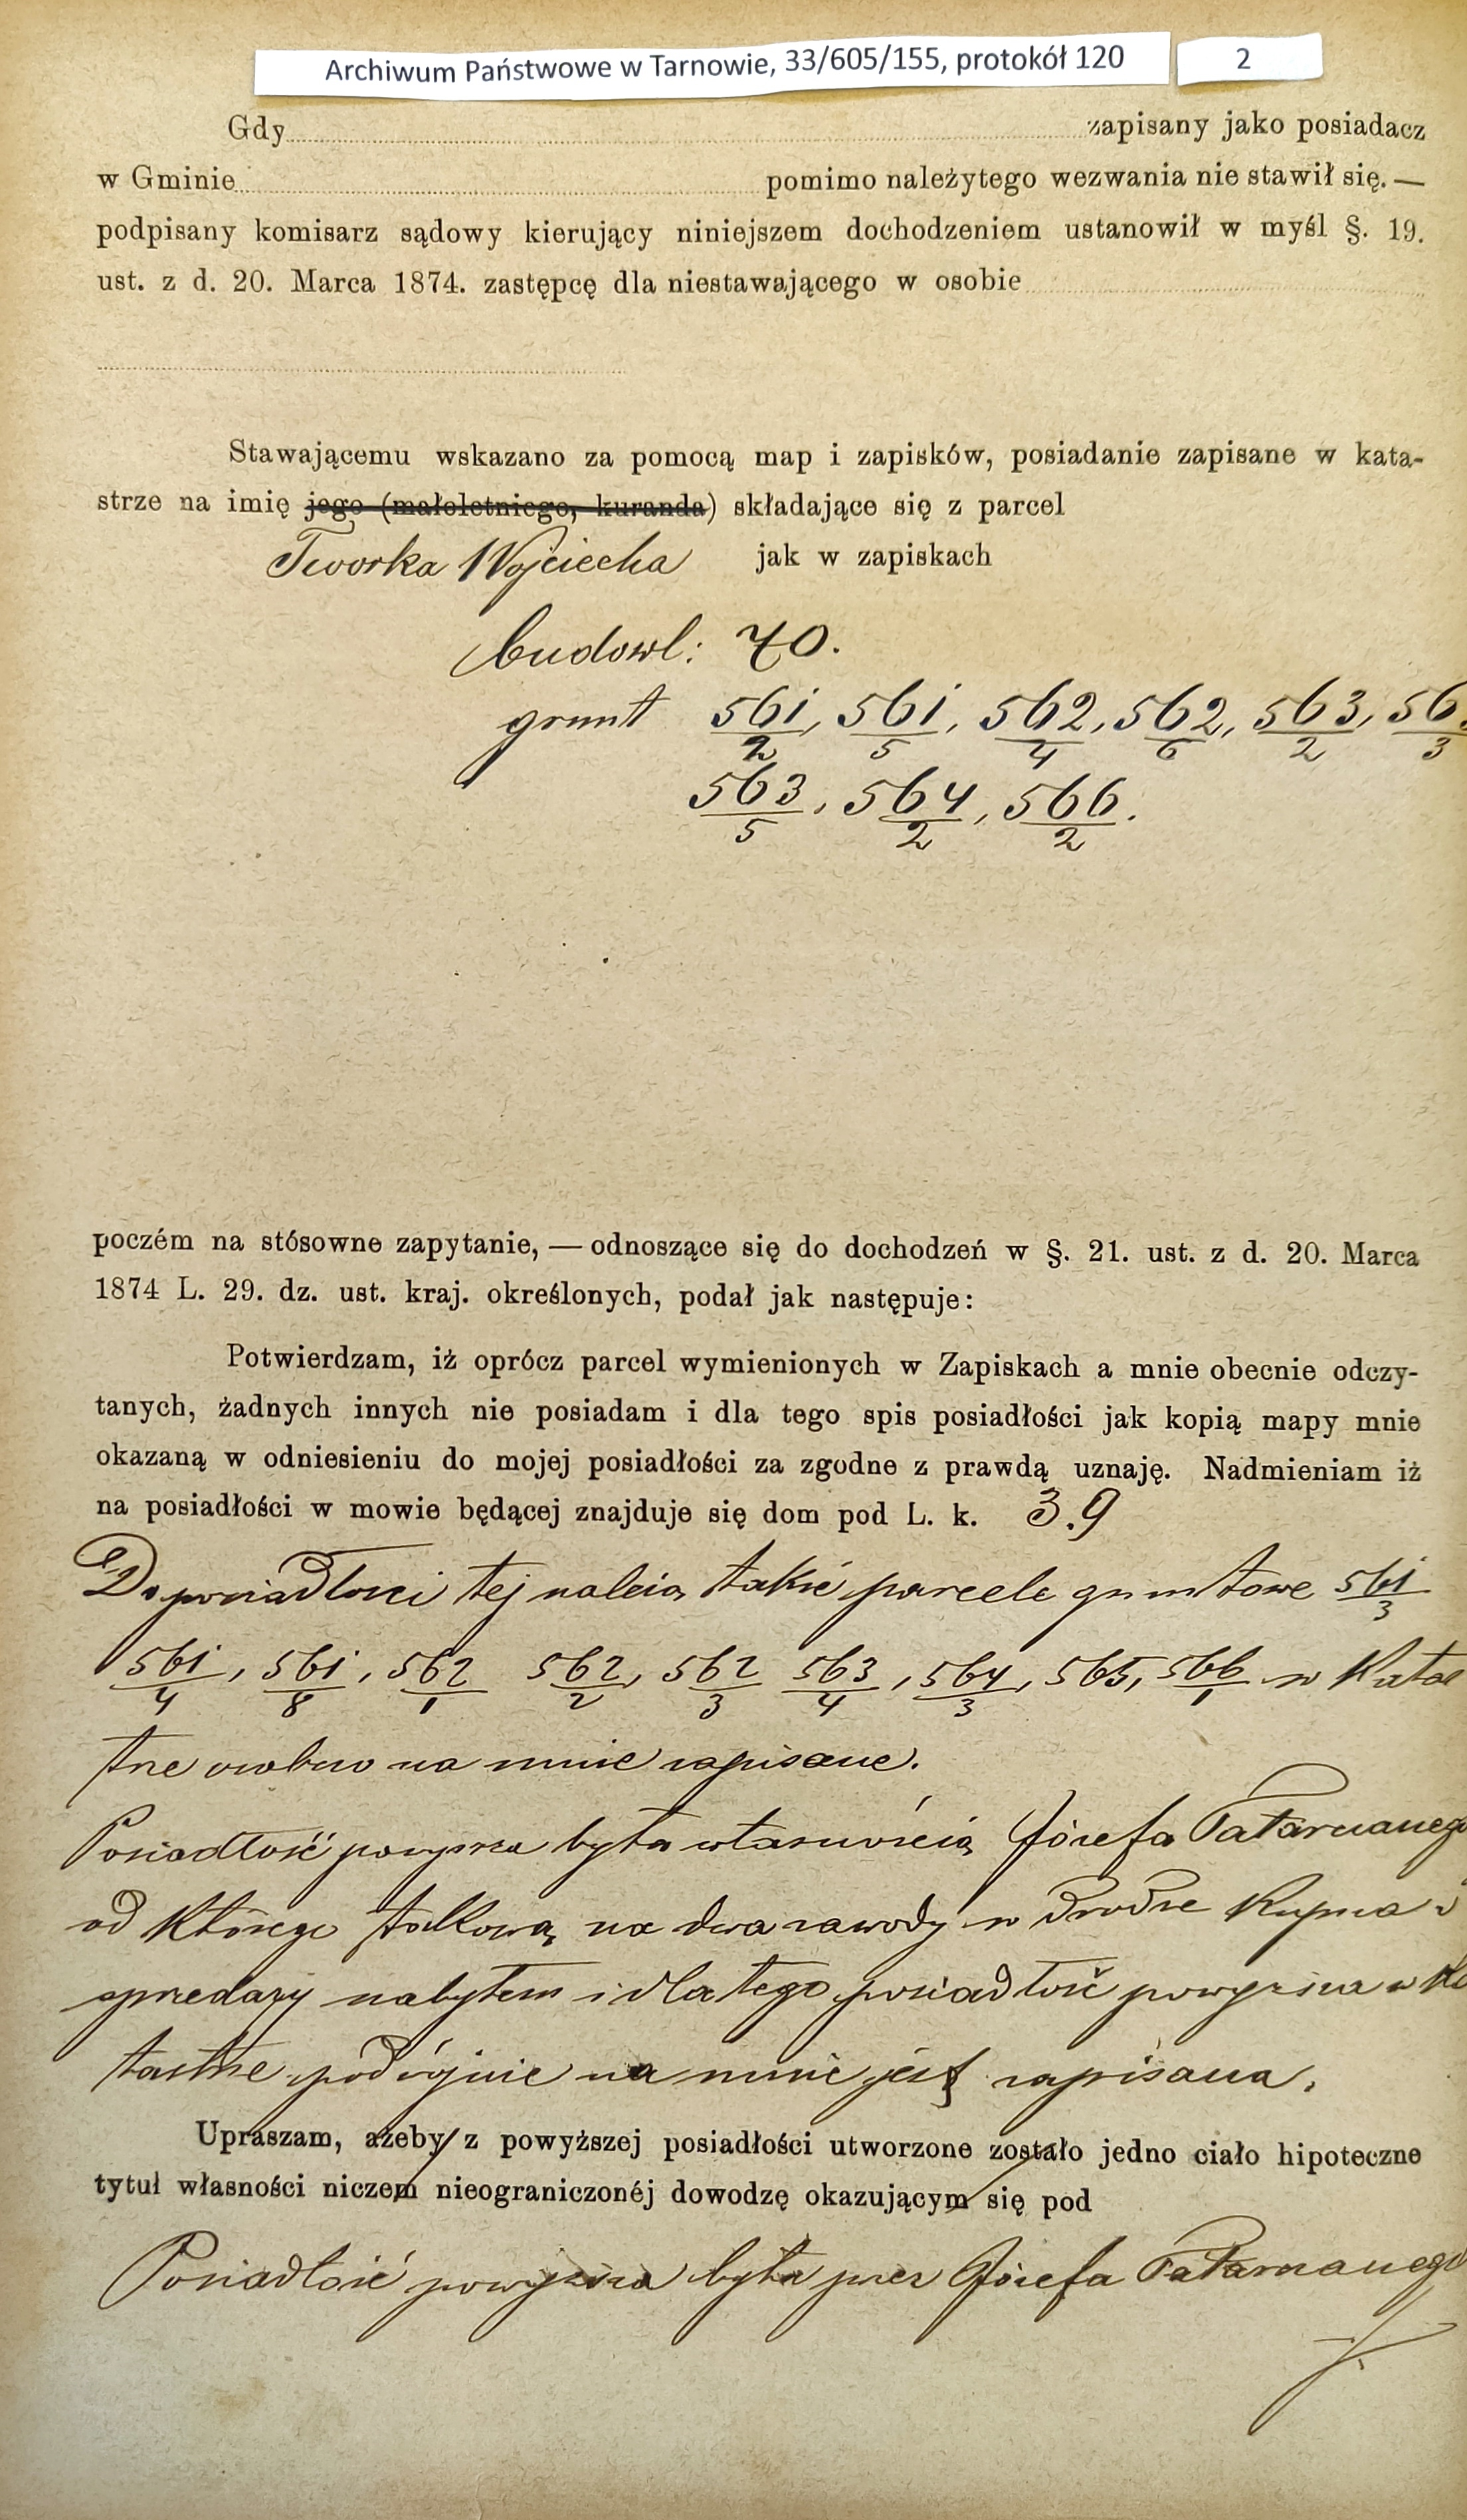 Archiwum Państwowe w Tarnowie, 33/605/155, protokół 120 2
Gdy zapisany jako posiadacz
w Gminie pomimo należytego wezwania nie stawił się. —
podpisany komisarz sądowy kierujący niniejszem dochodzeniem ustanowił w myśl §. 19.
ust. z d. 20. Marca 1874. zastępcę dla niestawającego w osobie
Stawającemu wskazano za pomocą map i zapisków, posiadanie zapisane w kata-
strze na imię jego (małoletniego, kuranda) składające się z parcel
Tworka Wojciecha jak w zapiskach
budowl: 70.
grunt 561/2, 561/5, 562/4, 562/6, 563/2, 563/3
563/5, 564/2, 566/2.
poczém na stósowne zapytanie, — odnoszące się do dochodzeń w §. 21. ust. z d. 20. Marca
1874 L. 29. dz. ust. kraj. określonych, podał jak następuje:
Potwierdzam, iż oprócz parcel wymienionych w Zapiskach a mnie obecnie odczy-
tanych, żadnych innych nie posiadam i dla tego spis posiadłości jak kopią mapy mnie
okazaną w odniesieniu do mojej posiadłości za zgodne z prawdą uznaję. Nadmieniam iż
na posiadłości w mowie będącej znajduje się dom pod L. k. 39
Do posiadłości tej należą także parcele gruntowe 561/3
561/4, 561/8, 562/1 562/2, 562/3 563/4, 564/3, 565, 566/1 w Kata
trze osobno na mnie zapisane.
Posiadłość powyższa była własnością Józefa Tatarczanego
od którego takową na dwa zawody w drodze kupna i
sprzedaży nabyłem i dla tego posiadłość powyższa w Ka
tastrze podwójnie na mnie jest zapisana.
Upraszam, ażeby z powyższej posiadłości utworzone zostało jedno ciało hipoteczne
tytuł własności niczem nieograniczonéj dowodzę okazującym się pod
Posiadłość powyższa była przez Józefa Tatarczanego